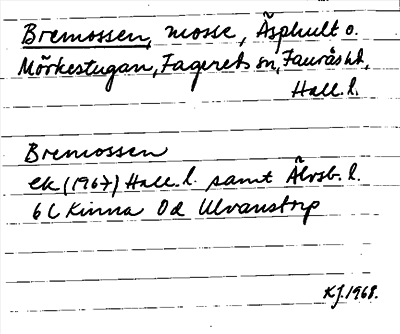 Bremossen, mosse, Äsphult o.
Mörkestugan, Fagereds sn, Faurås hd,
Hall. l.
Bremossen
ek (1967) Hall. l. samt Älvsb. l.
6 C Kinna 0 d Ulvanstorp
KJ. 1968.